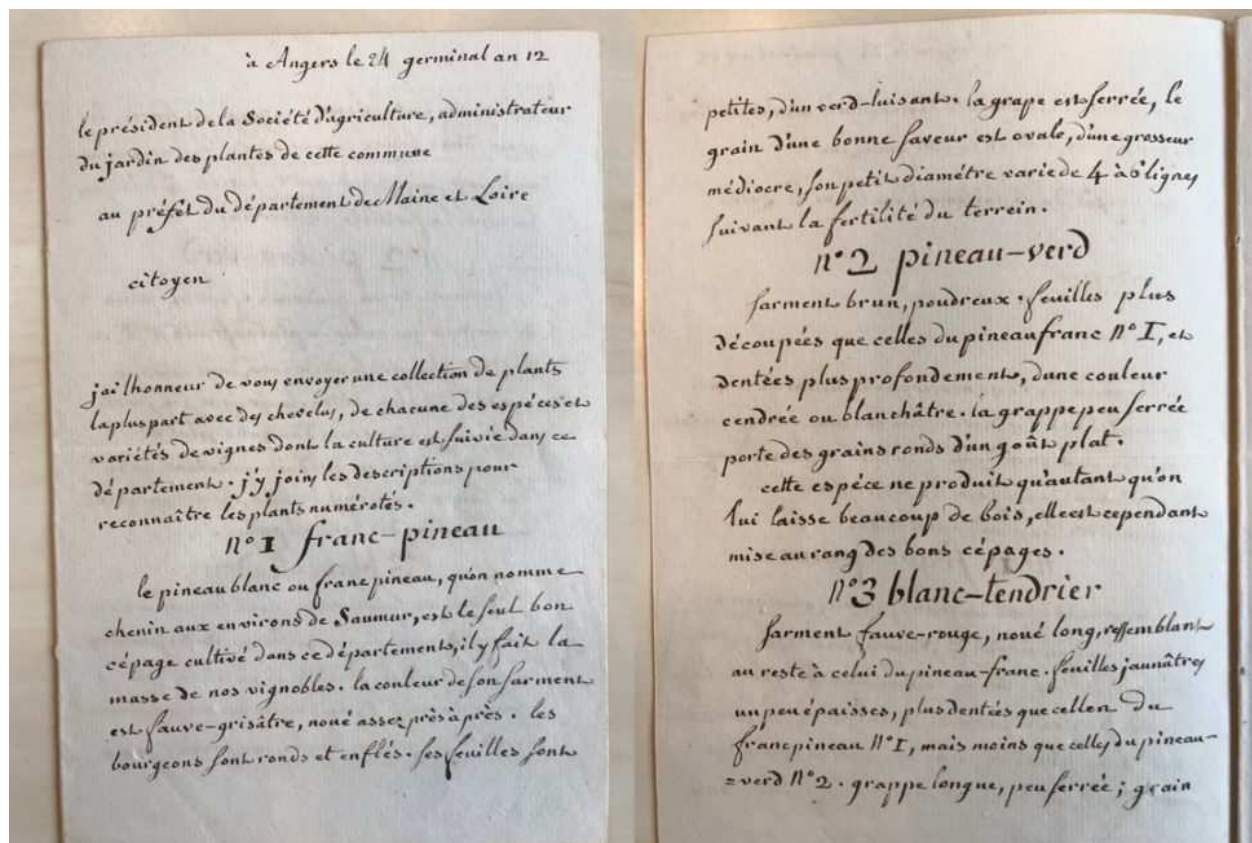 à Angers le 24 germinal an 12
le président de la Société d'agriculture, administrateur
du jardin des plantes de cette commune
au préfet du département de Maine et Loire
citoyen
jai lhonneur de vous envoyer une collection de plants
la pluspart avec des chevelus, de chacune des espéces et
variétés de vignes dont la culture est suivie dans ce
département. j'y joins les descriptions pour
reconnaître les plants numérotés.
n° I franc-pineau
le pineau blanc ou franc pineau, quon nomme
chenin aux environs de Saumur, est le seul bon
cépage cultivé dans ce département, il y fait la
masse de nos vignobles. la couleur de son sarment
est fauve-grisâtre, noué assez près à près. les
bourgeons sont ronds et enflés. ses feuilles sont
petites, d'un verd-luisant. la grape est serrée, le
grain d'une bonne saveur est ovale, d'une grosseur
médiocre, son petit diamétre varie de 4 à 6 lignes
suivant la fertilité du terrein.
n° 2 pineau-verd
sarment brun, poudreux. feuilles plus
découpées que celles du pineau franc n° I, et
dentées plus profondement, dune couleur
cendrée ou blanchâtre. la grappe peu serrée
porte des grains ronds d'un goût plat.
cette espéce ne produit qu'autant qu'on
lui laisse beaucoup de bois, elle est cependant
mise au rang des bons cépages.
n° 3 blanc-tendrier
sarment fauve-rouge, noué long, ressemblant
au reste à celui du pineau-franc. feuilles jaunâtres
un peu épaisses, plus dentées que celles du
franc pineau n° I, mais moins que celles du pineau-
=verd n° 2. grappe longue, peu serrée; grain